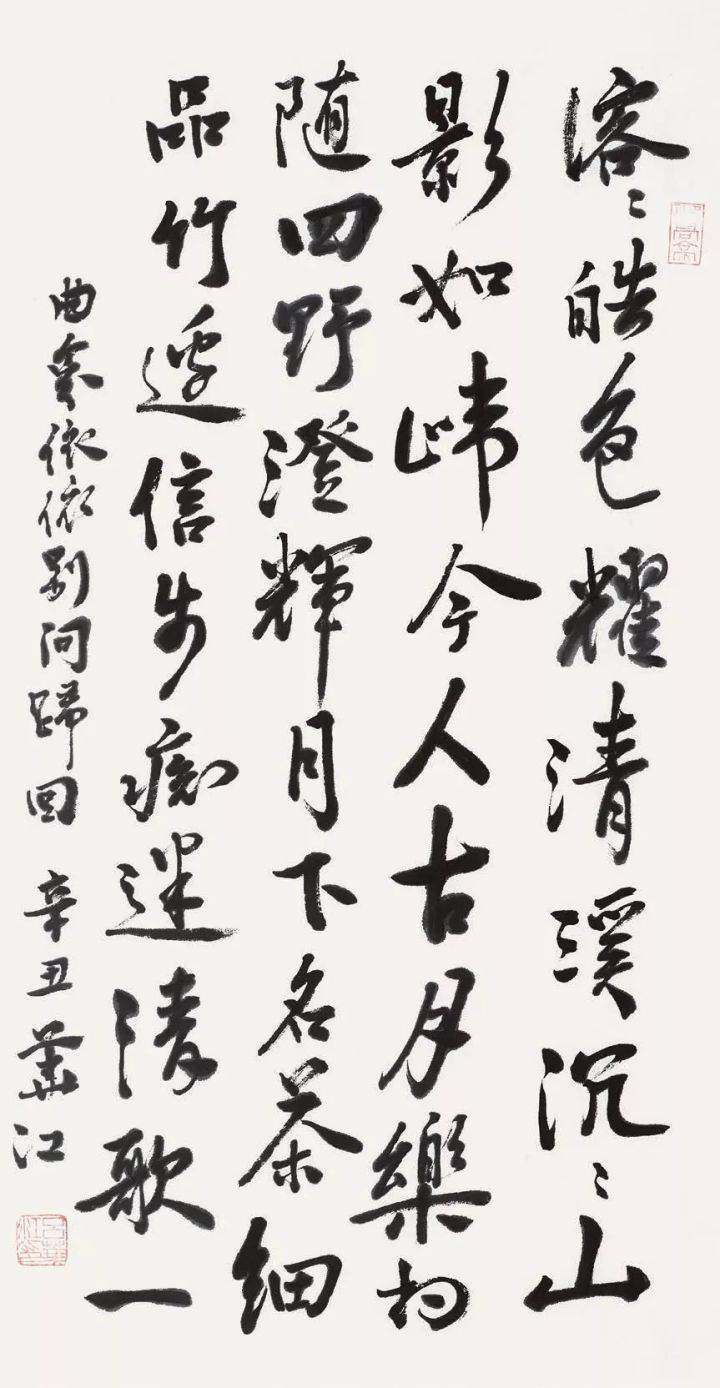 溶〻皓色耀清溪沉〻山
影如今人古月樂相
随四野澄輝月下名茶細
品竹邊信步痴迷清歌一
曲依依别问歸回 辛丑 華江